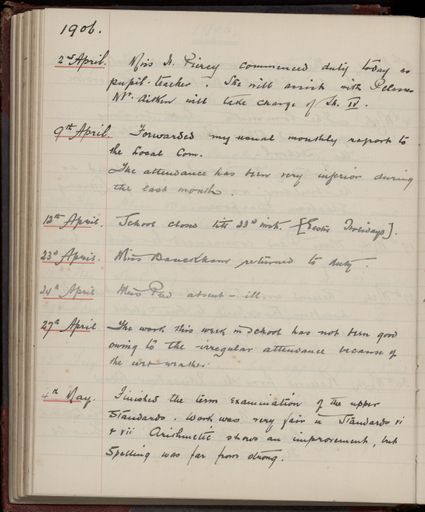 1906.
2nd April. Miss N. Piercy commenced duty today as
pupil-teacher. She will assist with P classes
Mr. Aitken will take charge of St. IV.
9th April. Forwarded my usual monthly report to
the Local Com.
The attendance has been very inferior during
the last month.
12th April. School closed till 23d inst. [Easter Holidays].
23d April. Miss returned to duty.
24th April Miss absent - ill.
27th April The work this week in School has not been good
owing to the irregular attendance because of
the wet weather.
4th May. Finished the term examination of the upper
Standards. Work was very fair in Standards vi
& vii Arithmetic shows an improvement, but
Spelling was far from strong.